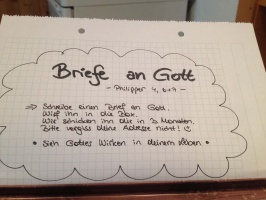 Briefe an Gott
- Philipper 4, 6+7 -
⇒ Schreibe einen Brief an Gott.
Wirf ihn in die Box.
Wir schicken ihn dir in 3 Monaten.
Bitte vergiss deine Adresse nicht! ☺
• Sieh Gottes Wirken in deinem Leben •